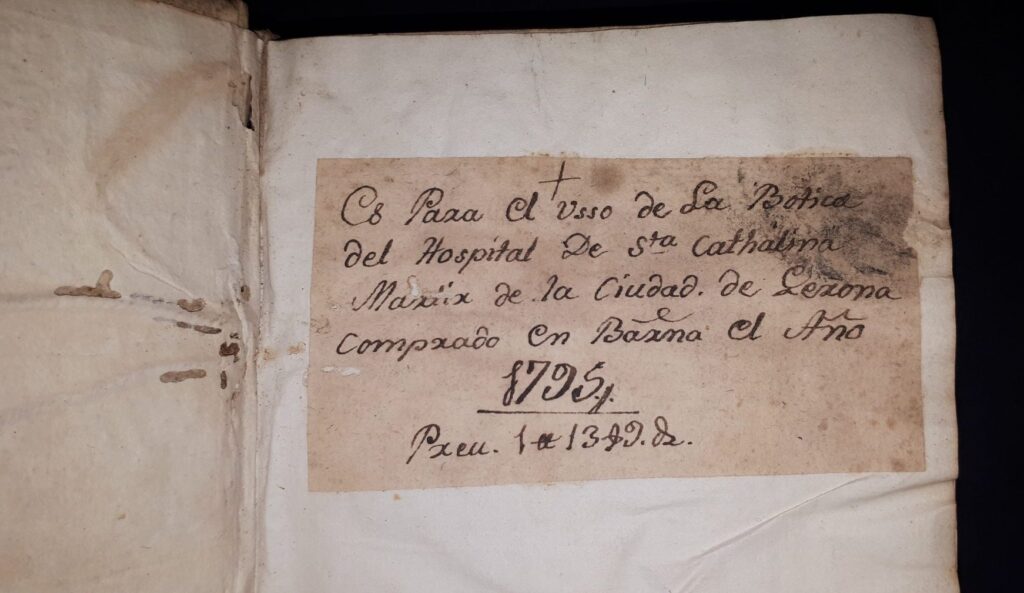 Es Para el usso de La Botica
del Hospital De Sta Cathalina
Martir de la Ciudad. de Gerona
comprado en Barna el Año
1795.
Preu. 1 ₶ 13